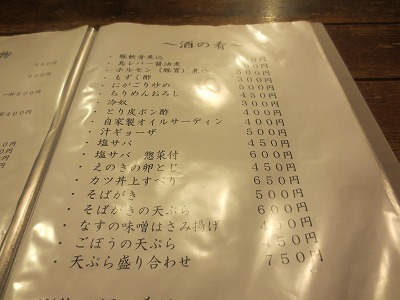 ～酒の肴～
・豚軟骨煮込
・鳥レバー醤油煮
・ホルモン(豚胃)煮込 500円
・もずく酢 300円
・にがごり炒め 500円
・ちりめんおろし 450円
・冷奴 300円
・とり皮ポン酢 400円
・自家製オイルサーディン 400円
・汁ギョーザ 500円
・塩サバ 450円
・塩サバ 惣菜付 600円
・えのきの卵とじ 450円
・カツ丼上すべり 650円
・そばがき 500円
・そばがきの天ぷら 600円
・なすの味噌はさみ揚げ 400円
・ごぼうの天ぷら 450円
・天ぷら盛り合わせ 750円
物